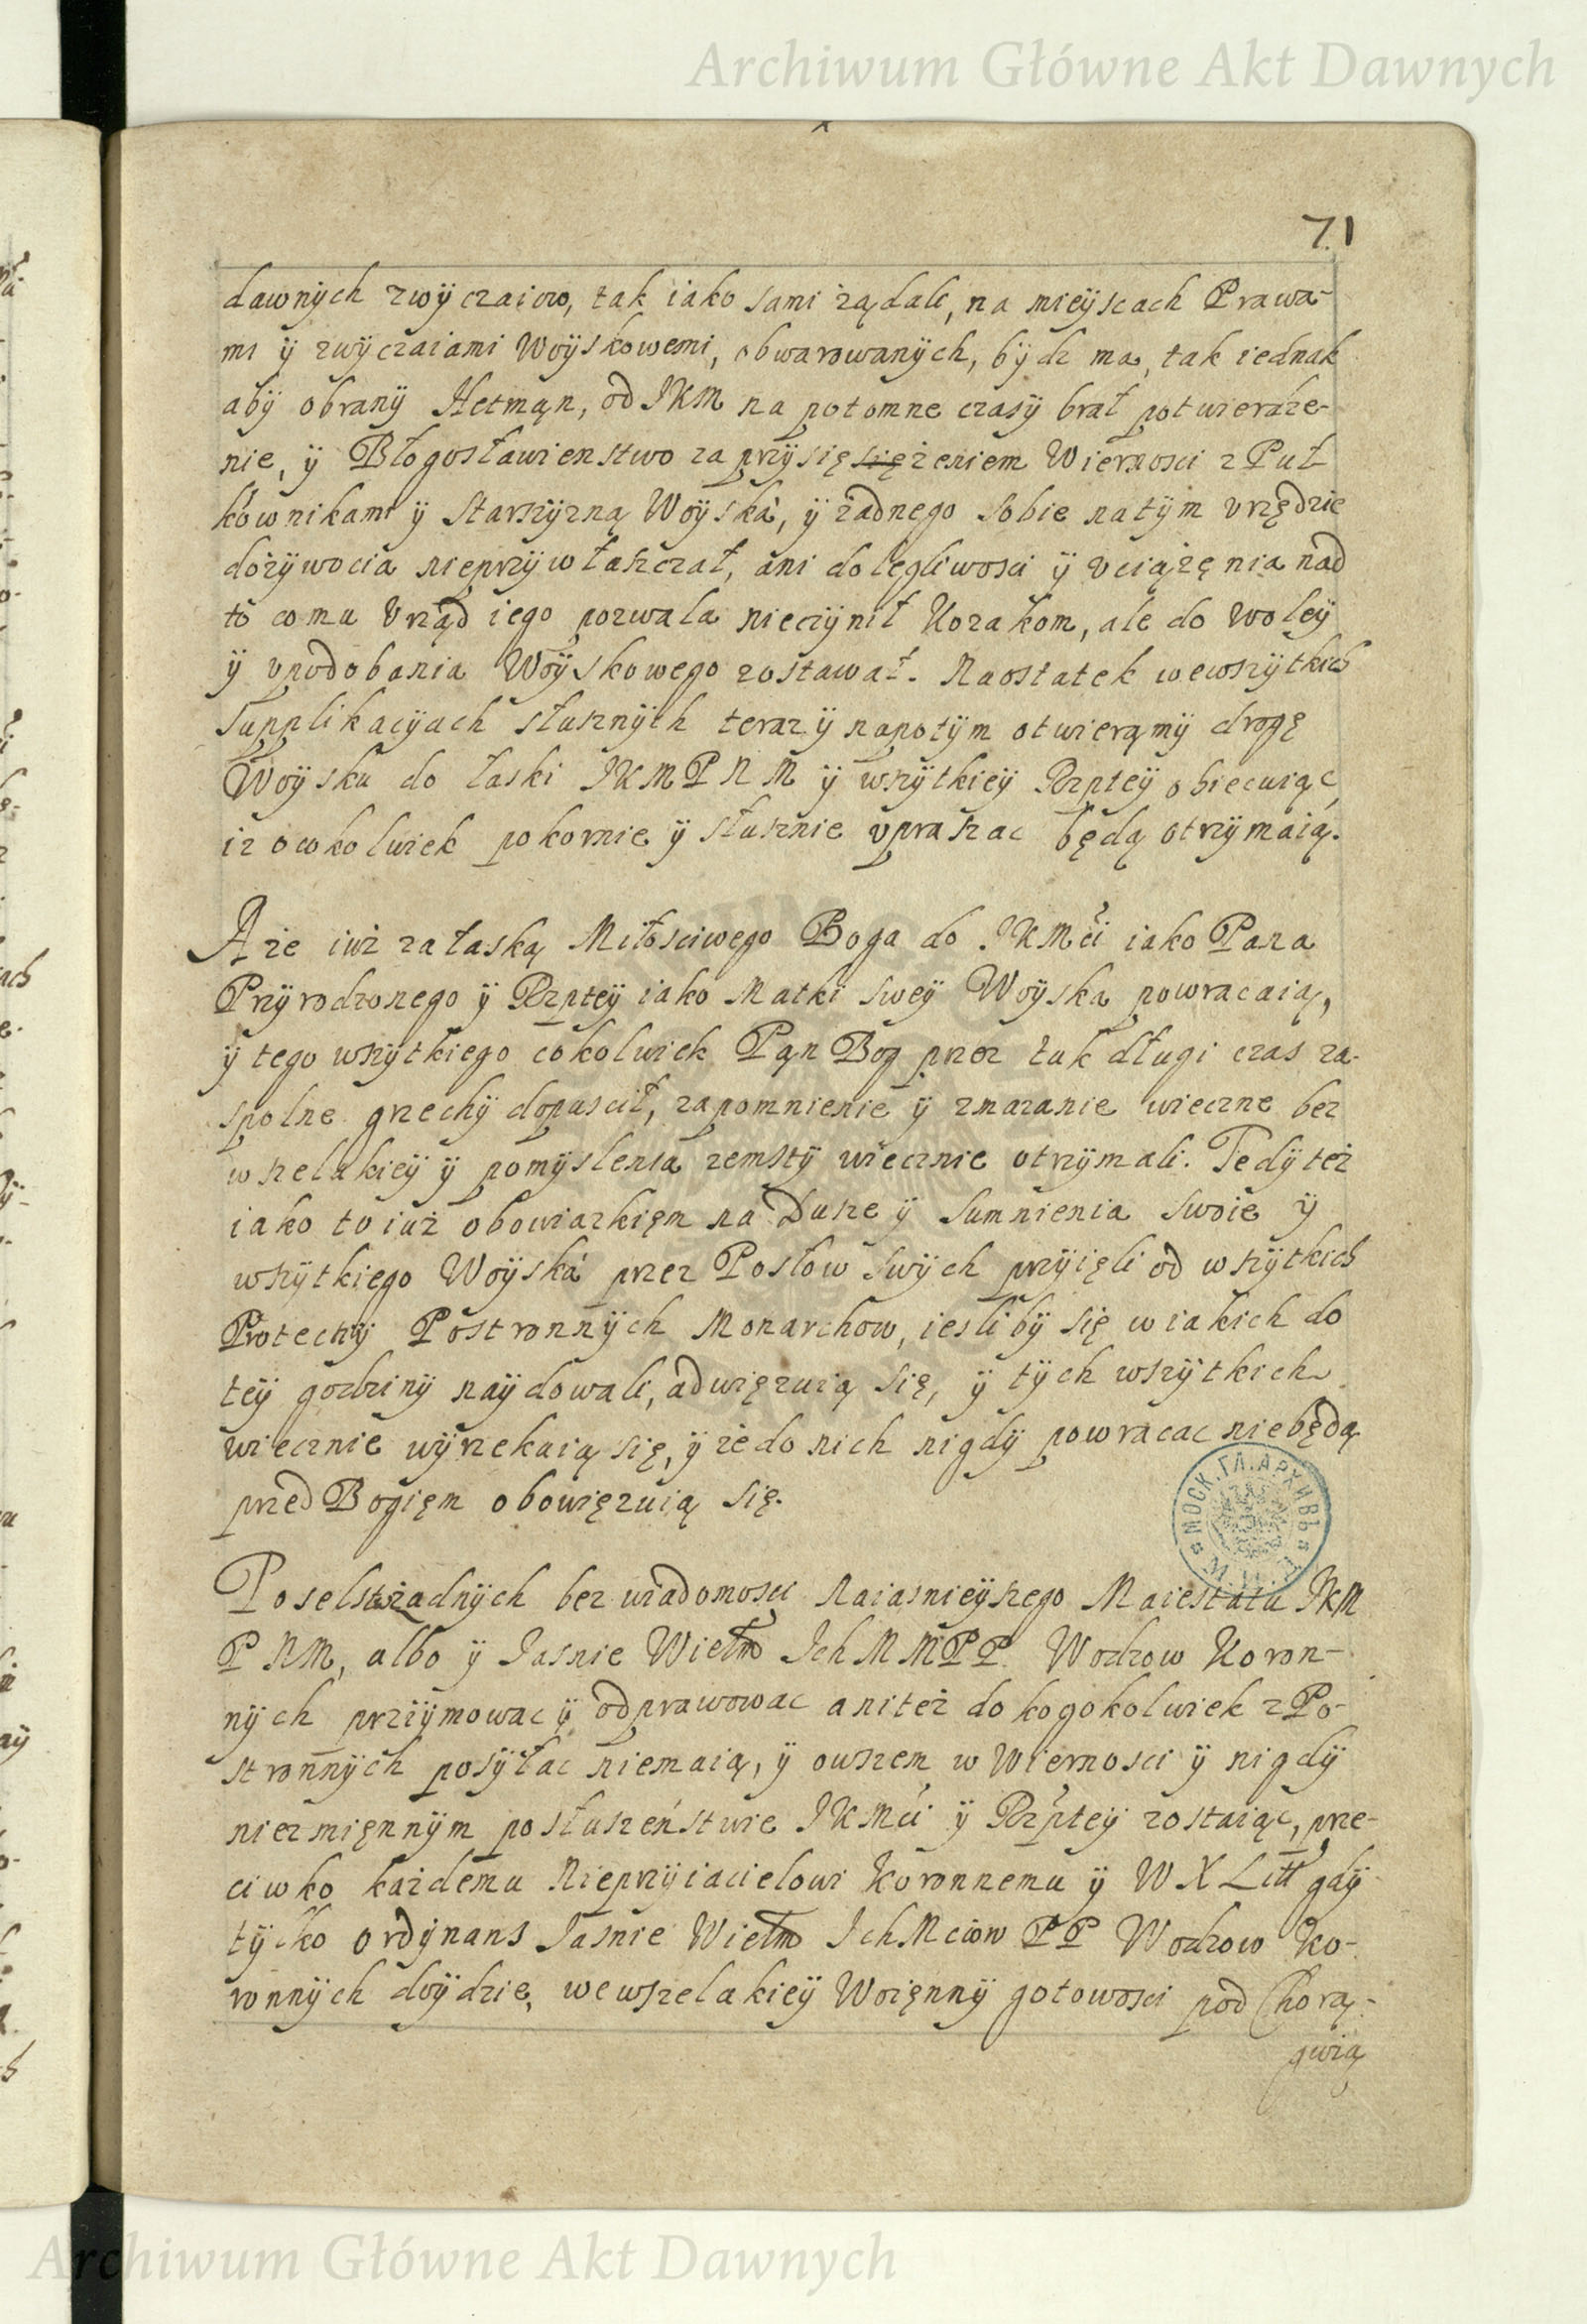 Archiwum Główne Akt Dawnych
71
dawnÿch zwÿczaiow, tak iako sami żądali, na mieÿscach Prawa-
mi ÿ zwÿczaiami Woÿskowemi, obwarowanÿch, bÿdz ma, tak iednak
abÿ obranÿ Hetmąn, od JKM na potomne czasÿ brał potwierdze-
nie, ÿ Błogosławienstwo za przÿsię się żeniem Wiernosci z Puł-
kownikami ÿ starszÿzną Woÿska, ÿ żadnego sobie natÿm vrzędzie
dożÿwocia nieprzÿwłaszczał, ani dolegliwosci ÿ vciążęnia nad
to co mu Vrząd iego pozwala nieczÿnił Kozakom, ale do woleÿ
ÿ vpodobania Woÿskowego zostawał. Naostatek wewszÿtkich
supplikacÿach słusznÿch teraz ÿ napotÿm otwierąmÿ drogę
Woÿsku do łaski JKMPNM ÿ wszÿtkieÿ Rzpteÿ obiecuiąc,
iz ocokolwiek pokornie ÿ słusznie vpraszac będą otrzÿmaią.
A że iuż za łaską Miłosciwego Boga do JKMći iako Pana
Przÿrodzonego ÿ Rzpteÿ iako Matki sweÿ Woÿska powracaią,
ÿ tego wszÿtkiego cokolwiek Pąn Bog przez tak długi czas za-
spolne grzechÿ dopuscił, zapomnienie ÿ zmazanie wieczne bez
wszelakieÿ ÿ pomÿslenia zemstÿ wiecznie otrzÿmali. Tedÿ też
iako to iuż obowiazkięm na Dusze ÿ sumnienia swoie ÿ
wszÿtkiego Woÿska przez Posłow swÿch przÿięli od wszÿtkich
Protectiÿ Postronnÿch Monarchow, iesli bÿ się w iakich do
teÿ godzinÿ naÿdowali, adwięzuią się, ÿ tÿch wszÿtkich
wiecznie wÿrzekaią się, ÿ że do nich nigdÿ powracac niebędą
przed Bogięm obowięzuią się.
МОСК. ГЛ. АРХИВЪ
Poselstw żadnÿch bez wiadomosci Naiasnieÿszego Maiestatu JKM
PNM, albo ÿ Jasnie Wielm JchMMPP. Wodzow Koron-
nÿch przÿimowac ÿ odprawowac aniteż do kogokolwiek z Po-
stronnÿch posÿłac niemaią, ÿ owszem w Wiernosci ÿ nigdÿ
niezmięnnÿm posłuszeństwie JKMći ÿ Rzpteÿ zostaiąc, prze-
ciwko każdemu Nieprzÿiacielowi Koronnemu ÿ W X Litt gdÿ
tÿlko ordÿnans Jasnie Wielm JchMciow PP Wodzow Ko-
ronnÿch doÿdzie, wewszelakieÿ Woięnnÿ gotowosci pod Chorą-
gwią
Archiwum Główne Akt Dawnych